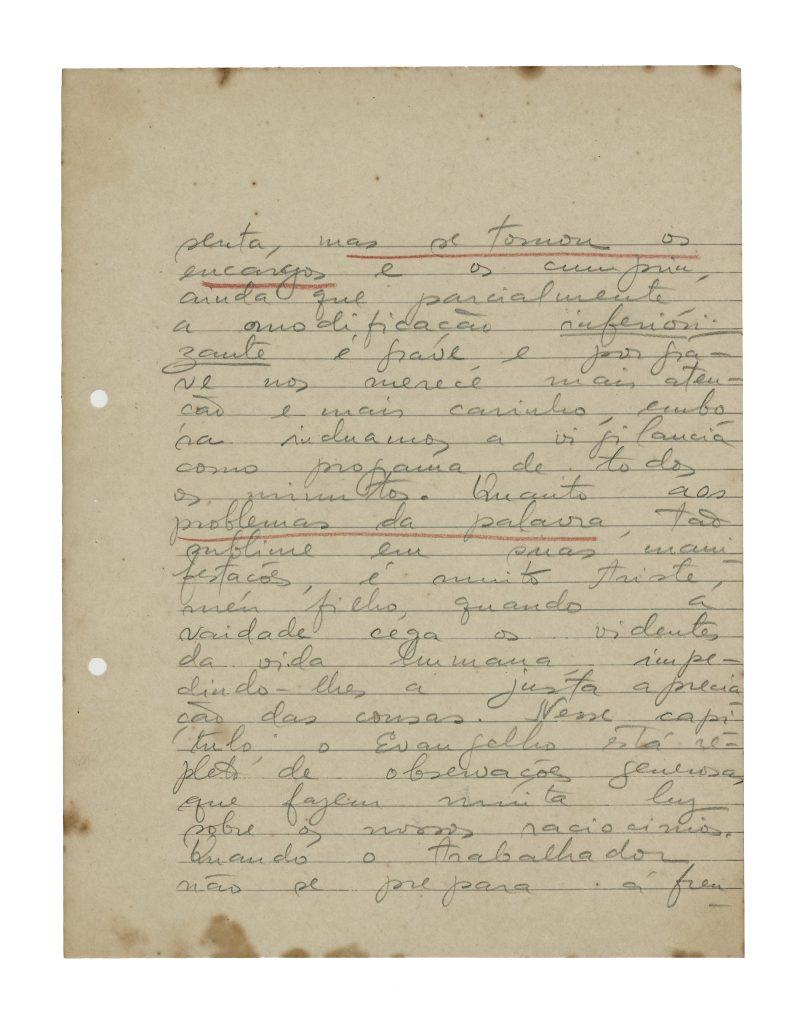 senta, mas se tomou os
encargos e os cumpriu,
ainda que parcialmente
a modificação inferiori-
zante é grave e por gra-
ve nos merece mais aten-
ção e mais carinho, embo
ra incluamos a vigilancia
como programa de todos
os minutos. Quanto aos
problemas da palavra, tão
sublime em suas mani
festações, é muito triste,
meu filho, quando a
vaidade cega os videntes
da vida humana, impe-
dindo-lhes a justa aprecia
ção das cousas. Nesse capi
tulo o Evangelho está re-
pleto de observações generosas
que fazem muita luz
sobre os nossos raciocinios.
Quando o trabalhador
não se prepara á fren-